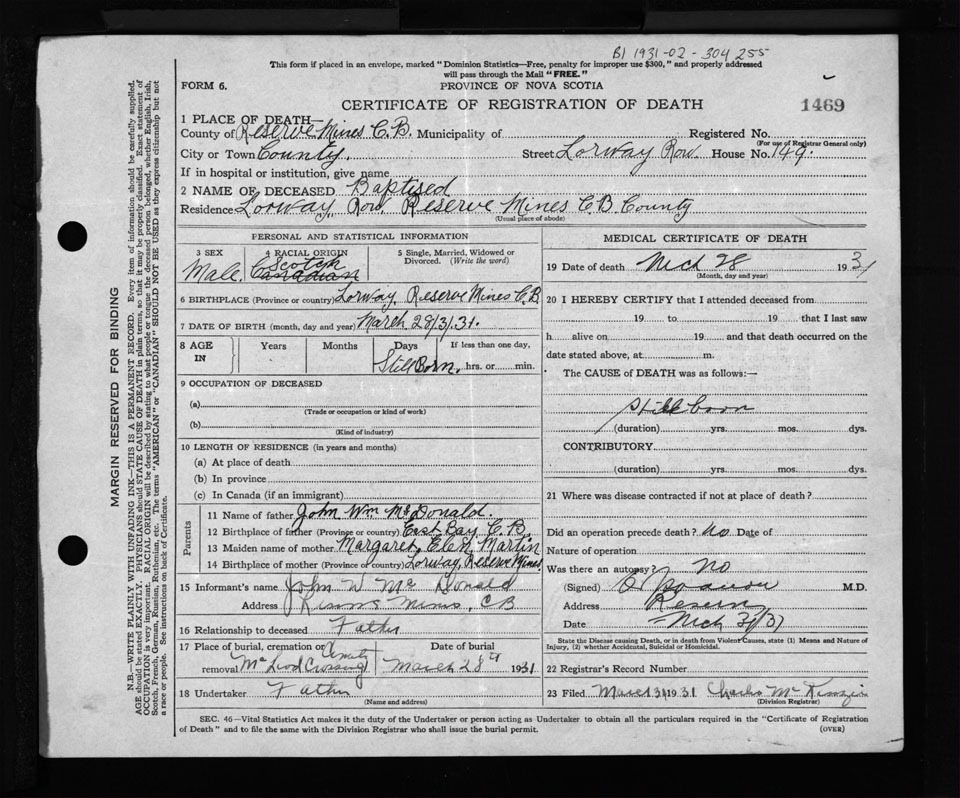 B1 1931-02-304255
This form if placed in an envelope, marked "Dominion Statistics—Free, penalty for improper use $300," and properly addressed
will pass through the Mail "FREE."
FORM 6.
PROVINCE OF NOVA SCOTIA
CERTIFICATE OF REGISTRATION OF DEATH
1469
1 PLACE OF DEATH—
County of Reserve Mines C.B. Municipality of Registered No.
(For use of Registrar General only)
City or Town County. Street Lorway Row. House No. 149.
If in hospital or institution, give name
2 NAME OF DECEASED Baptised
Residence Lorway Row Reserve Mines C.B. County
(Usual place of abode)
PERSONAL AND STATISTICAL INFORMATION
3 SEX
Male.
4 RACIAL ORIGIN
Scotch
Canadian
5 Single, Married, Widowed or
Divorced. (Write the word)
6 BIRTHPLACE (Province or country) Lorway, Reserve Mines C.B
7 DATE OF BIRTH (month, day and year) March 28/3/31.
8 AGE
IN
Years
Months
Days
If less than one day,
Still Born. hrs. or min.
9 OCCUPATION OF DECEASED
(a)
(Trade or occupation or kind of work)
(b)
(Kind of industry)
10 LENGTH OF RESIDENCE (in years and months)
(a) At place of death
(b) In province
(c) In Canada (if an immigrant)
Parents
11 Name of father John Wm McDonald.
12 Birthplace of father (Province or country) East Bay C.B.
13 Maiden name of mother Margaret Elen Martin
14 Birthplace of mother (Province or country) Lorway, Reserve Mines
15 Informant's name John W McDonald
Address Mines, CB
16 Relationship to deceased Father
17 Place of burial, cremation or
removal McLeod Crossing
Date of burial
March 28th 1931
18 Undertaker Father
(Name and address)
MEDICAL CERTIFICATE OF DEATH
19 Date of death Mch 28 1931
(Month, day and year)
20 I HEREBY CERTIFY that I attended deceased from
19 to 19 that I last saw
h alive on 19 and that death occurred on the
date stated above, at m.
The CAUSE of DEATH was as follows:—
Still born
(duration) yrs. mos. dys.
CONTRIBUTORY
(duration) yrs. mos. dys.
21 Where was disease contracted if not at place of death?
Did an operation precede death? No Date of
Nature of operation
Was there an autopsy? No
(Signed) M.D.
Address
Date Mch 31/31
State the Disease causing Death, or in death from Violent Causes, state (1) Means and Nature of
Injury, (2) whether Accidental, Suicidal or Homicidal.
22 Registrar's Record Number
23 Filed March 31 1931 Charles
(Division Registrar)
SEC. 46—Vital Statistics Act makes it the duty of the Undertaker or person acting as Undertaker to obtain all the particulars required in the "Certificate of Registration
of Death" and to file the same with the Division Registrar who shall issue the burial permit.
(OVER)
MARGIN RESERVED FOR BINDING
N.B.—WRITE PLAINLY WITH UNFADING INK—THIS IS A PERMANENT RECORD. Every item of information should be carefully supplied.
AGE should be stated EXACTLY. PHYSICIANS should STATE CAUSE OF DEATH in plain terms, so that it may be properly classified. Exact statement of
OCCUPATION is very important. RACIAL ORIGIN will be described by stating to what people or tongue the deceased person belonged, whether English, Irish,
Scotch, French, German, Russian, Ruthenian, etc. The terms "AMERICAN" or "CANADIAN" SHOULD NOT BE USED as they express citizenship but not
a race or people. See instructions on back of Certificate.